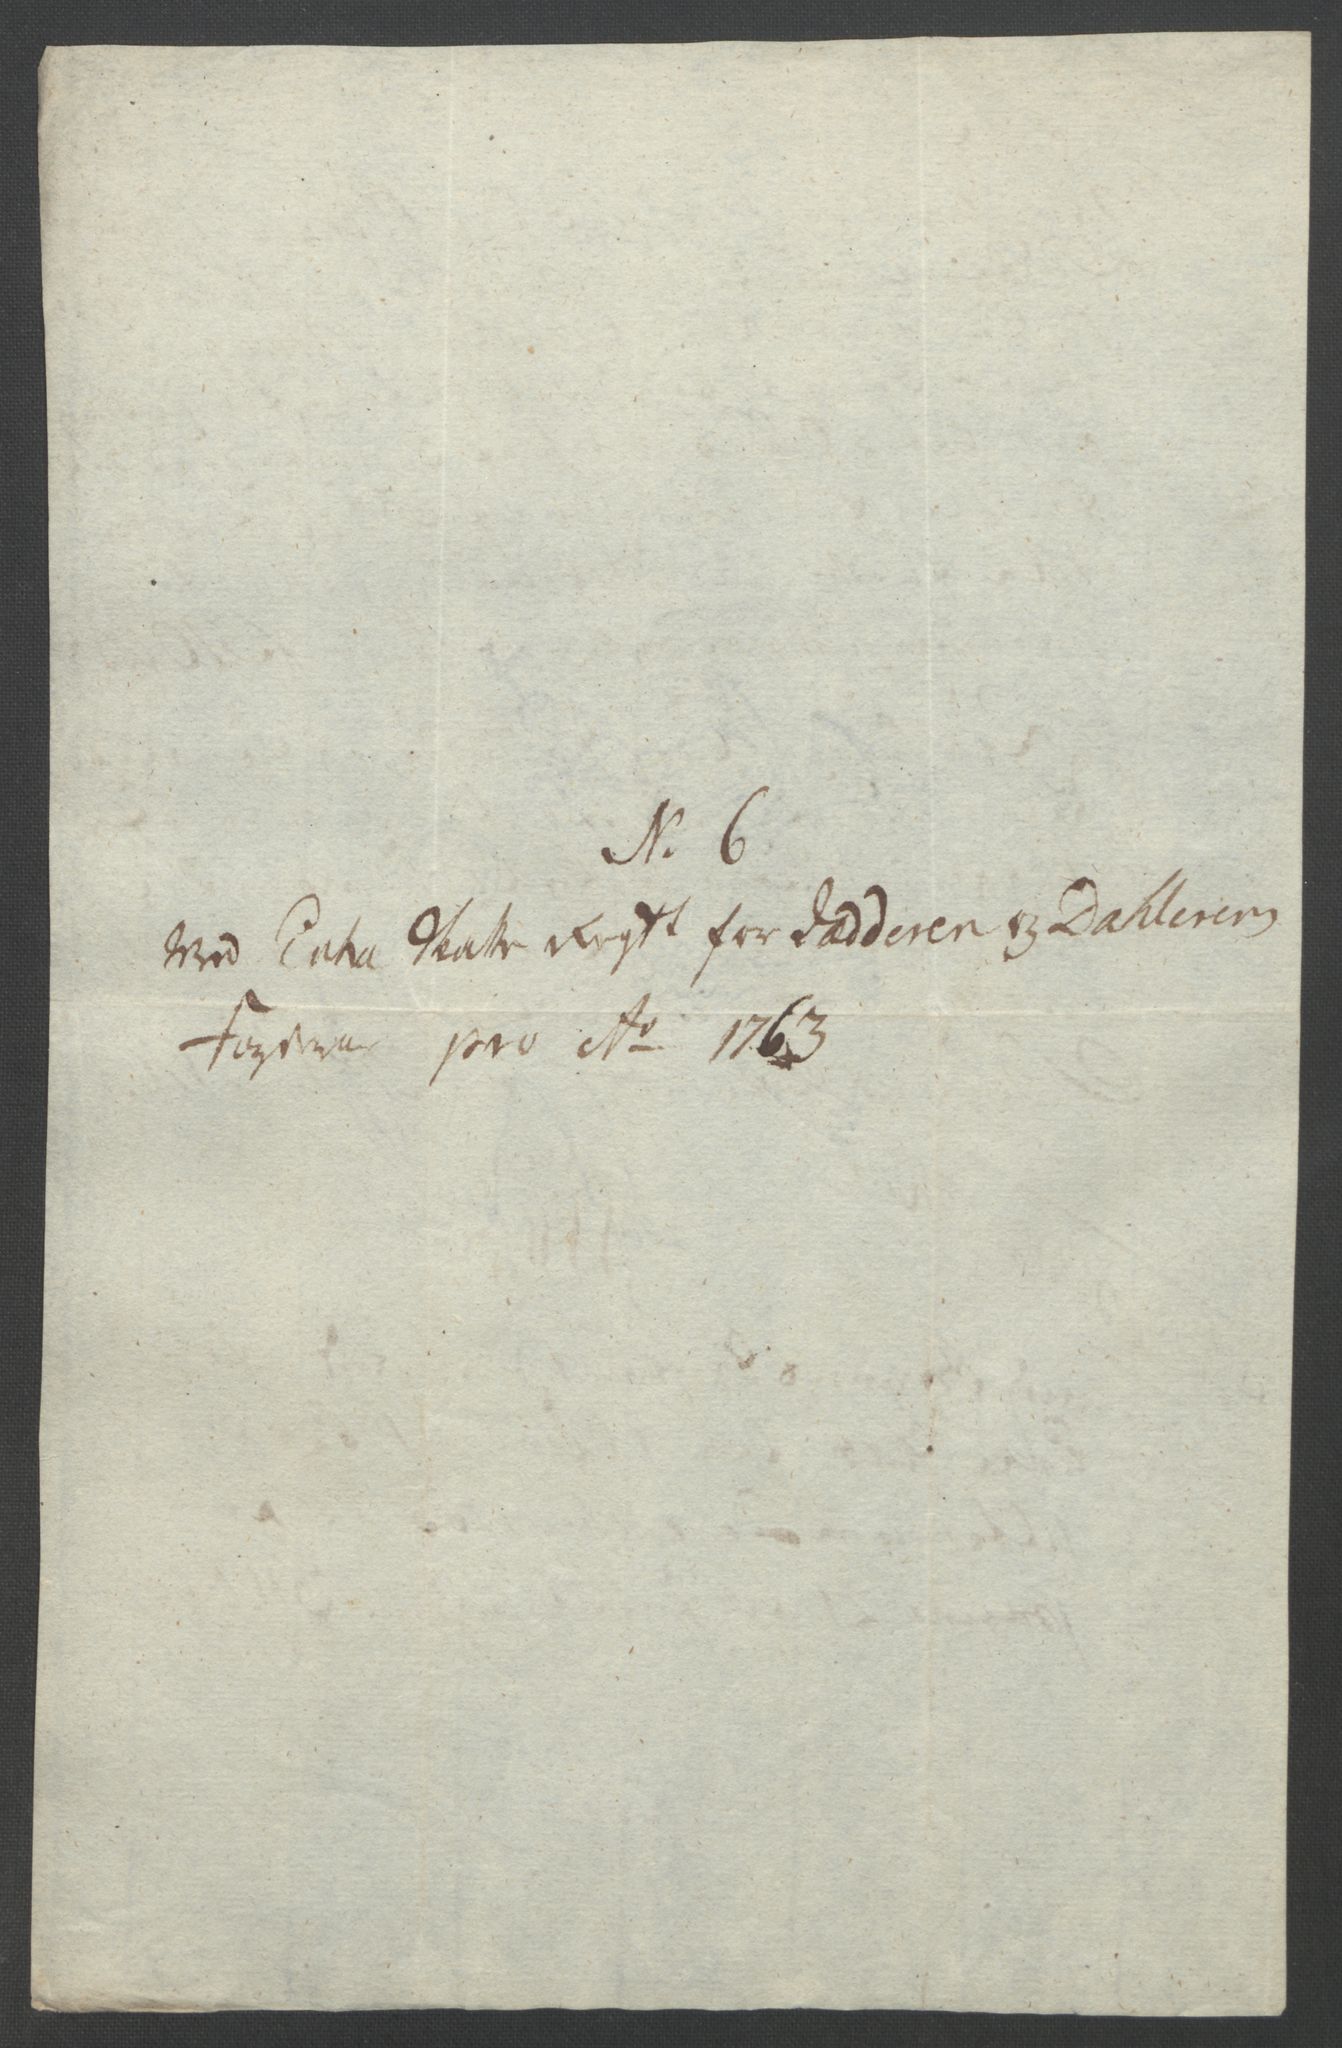 N. 6
Ved Extra Skatte Regst for Jædderen og Dahlerens
Fogderie pro Ao 1763